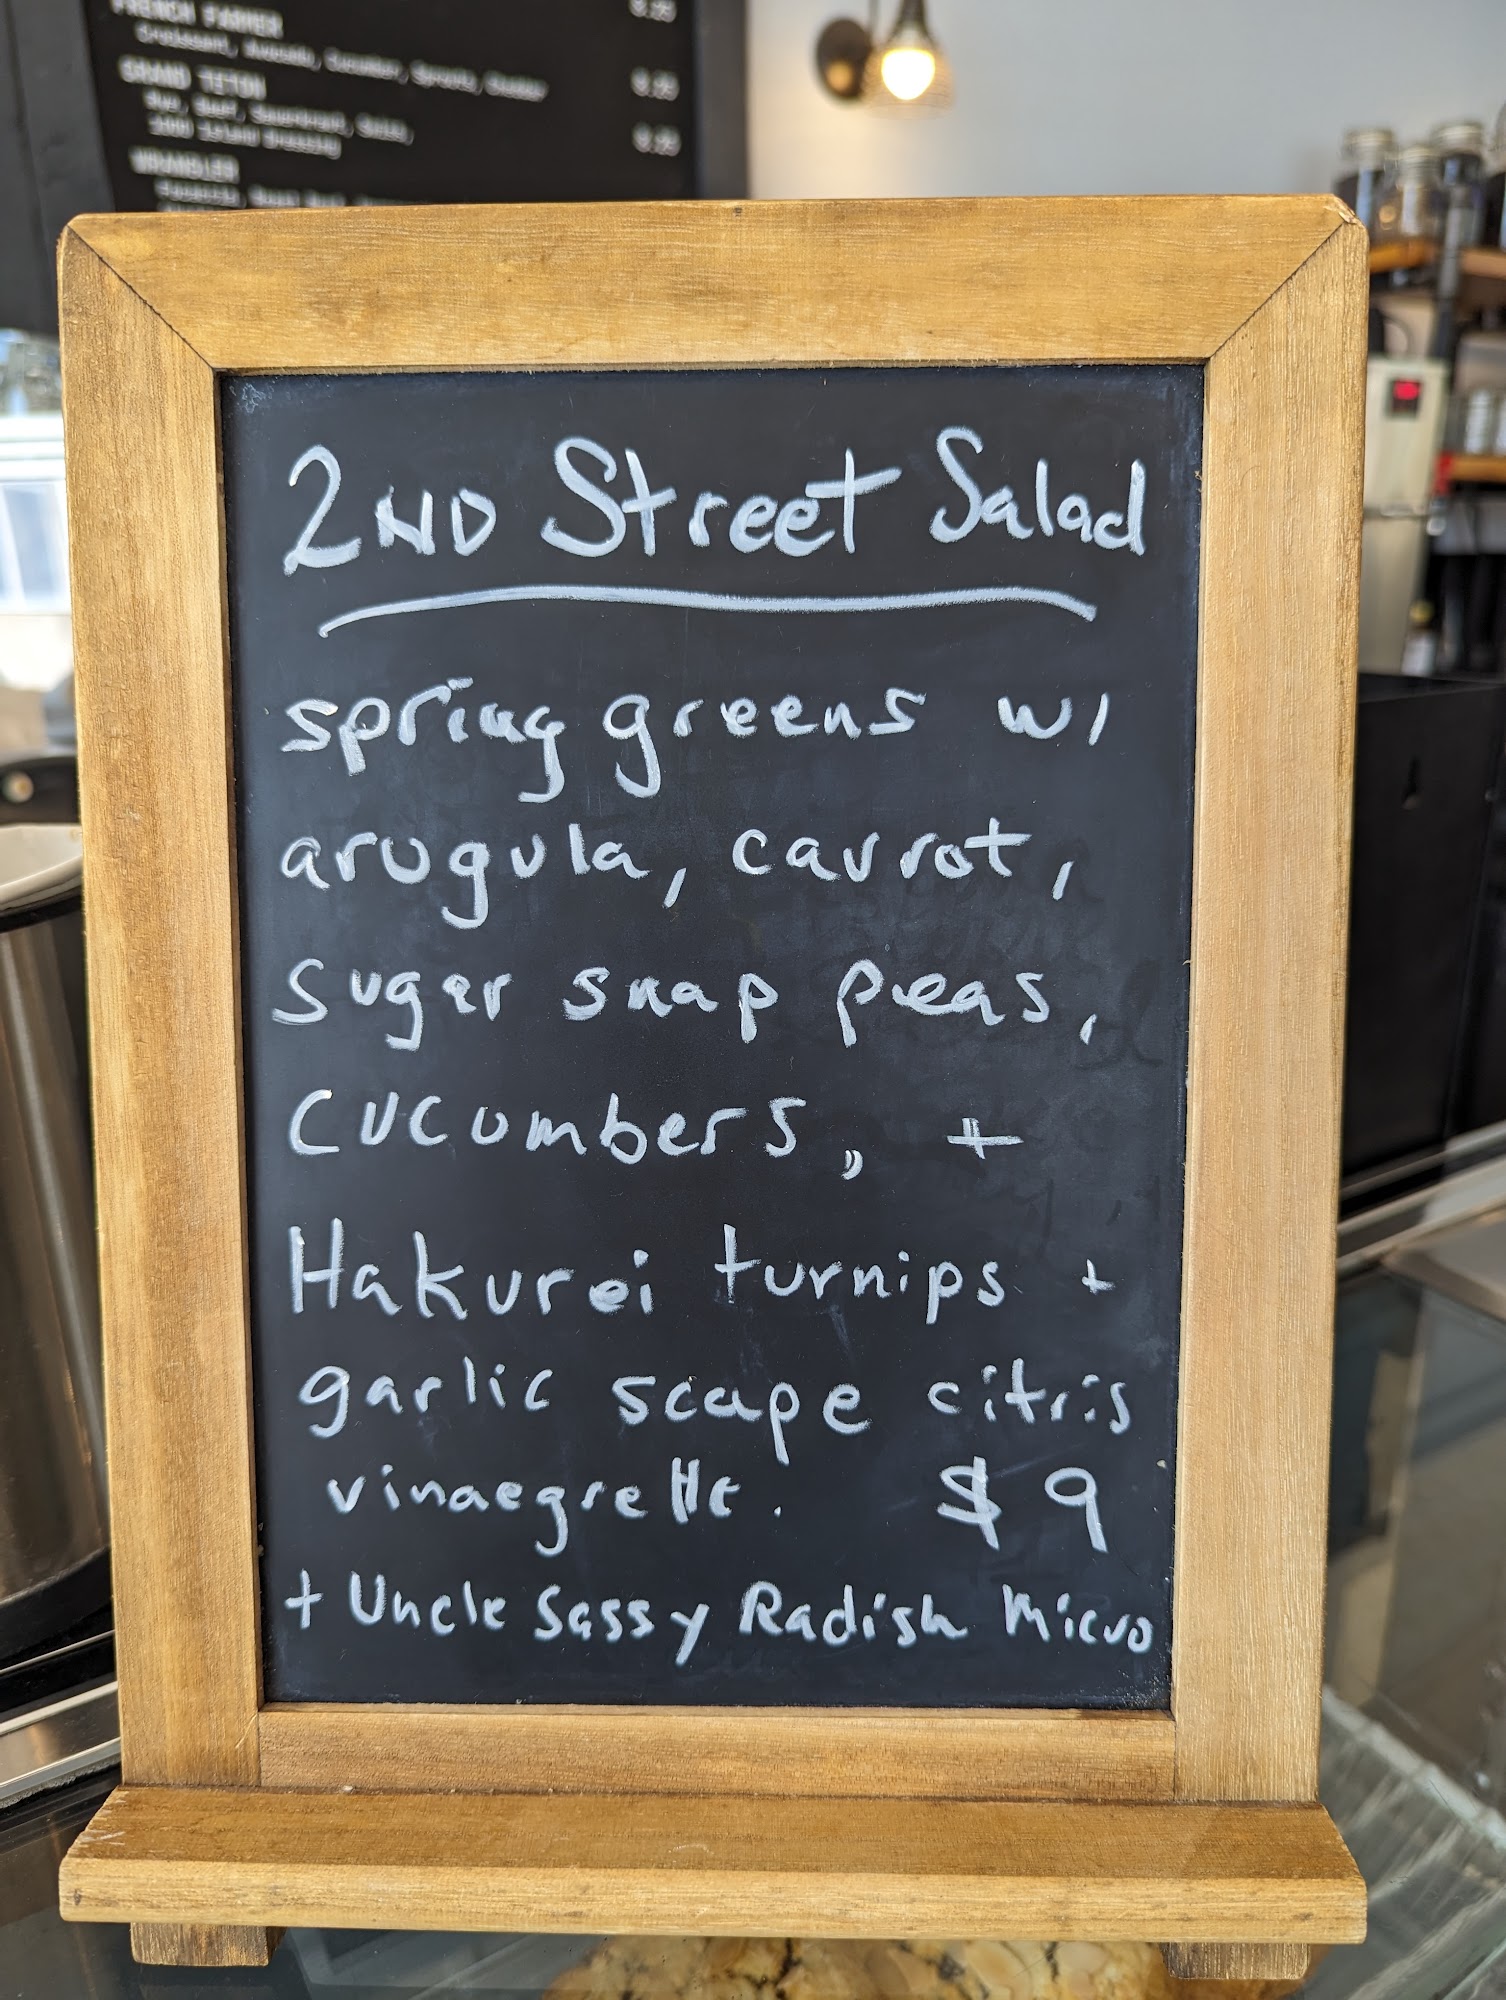 FRENCH FARMER
Croissant, Avocado, Cucumber, Sprouts, Cheddar
GRAND TETON
Rye, Beef, Sauerkraut, Swiss,
1000 Island Dressing
WRANGLER
2ND Street Salad
spring greens w/
arugula, carrot,
sugar snap peas,
cucumbers, +
Hakurei turnips +
garlic scape citris
vinaegrette. $9
+ Uncle Sassy Radish Micro